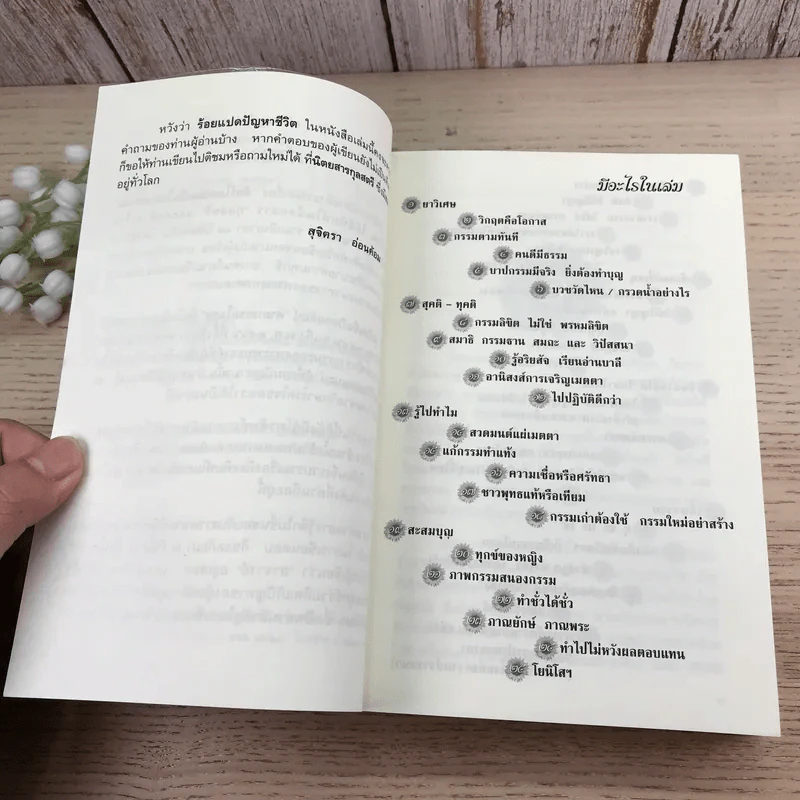 หวังว่า ร้อยแปดปัญหาชีวิต ในหนังสือเล่มนี้คง
คำถามของท่านผู้อ่านบ้าง หากคำตอบของผู้เขียนยังไม่
ก็ขอให้ท่านเขียนไปติชมหรือถามใหม่ได้ ที่นิตยสารกุลสตรี
อยู่ทั่วโลก
สุจิตรา อ่อนค้อม
มีอะไรในเล่ม
๑ ยาวิเศษ
๒ วิกฤตคือโอกาส
๓ กรรมตามทันที
๔ คนดีมีธรรม
๕ บาปกรรมมีจริง ยิ่งต้องทำบุญ
๖ บวชวัดไหน / กรวดน้ำอย่างไร
๗ สุคติ - ทุคติ
๘ กรรมลิขิต ไม่ใช่ พรหมลิขิต
๙ สมาธิ กรรมฐาน สมถะ และ วิปัสสนา
๑๐ รู้อริยสัจ เรียนอ่านบาลี
๑๑ อานิสงส์การเจริญเมตตา
๑๒ ไปปฏิบัติดีกว่า
๑๓ รู้ไปทำไม
๑๔ สวดมนต์แผ่เมตตา
๑๕ แก้กรรมทำแท้ง
๑๖ ความเชื่อหรือศรัทธา
๑๗ ชาวพุทธแท้หรือเทียม
๑๘ กรรมเก่าต้องใช้ กรรมใหม่อย่าสร้าง
๑๙ สะสมบุญ
๒๐ ทุกข์ของหญิง
๒๑ ภาพกรรมสนองกรรม
๒๒ ทำชั่วได้ชั่ว
๒๓ ภาณยักษ์ ภาณพระ
๒๔ ทำไปไม่หวังผลตอบแทน
๒๕ โยนิโสฯ